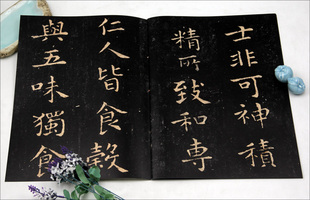 士非可神積
精所致和專
仁人皆食穀
與五味獨食